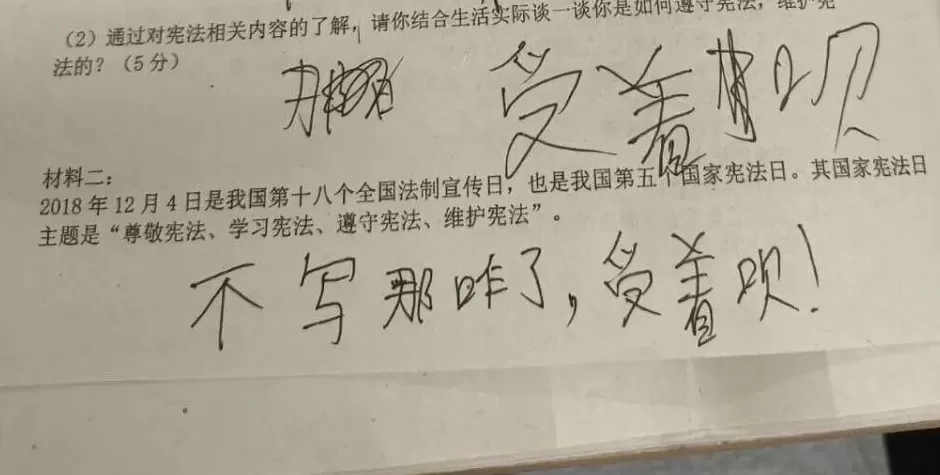 （2）通过对宪法相关内容的了解，请你结合生活实际谈一谈你是如何遵守宪法，维护宪
法的？（5分）
受着呗
材料二：
2018年12月4日是我国第十八个全国法制宣传日，也是我国第五个国家宪法日。其国家宪法日
主题是“尊敬宪法、学习宪法、遵守宪法、维护宪法”。
不写那咋了，受着呗！